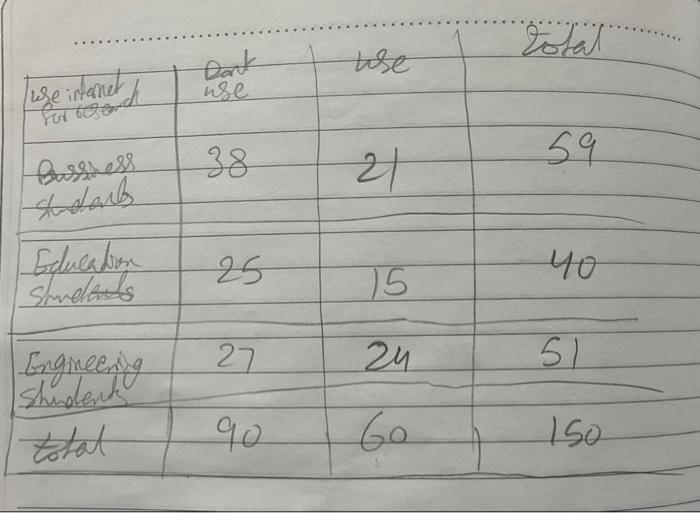 Dont use total
use internet use
for research
Bussiness 38 21 59
Students
Education 25 15 40
Students
Engineering 27 24 51
Students
total 90 60 150